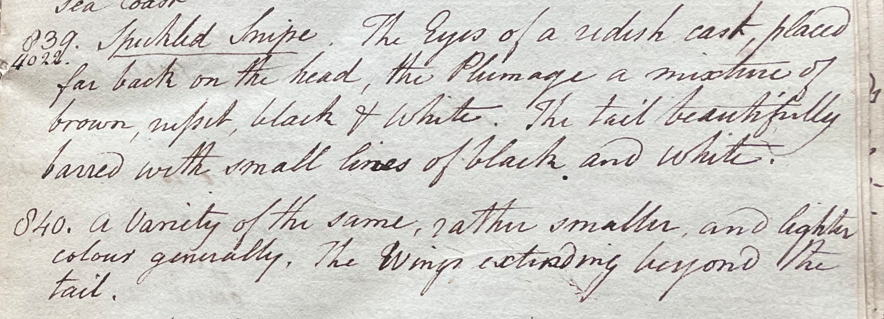 sea Coast
839. Speckled Snipe. The Eyes of a redish cast, placed
4022.
far back on the head, the Plumage a mixture of
brown, russet, black & White. The tail beautifully
barred with small lines of black and white.
840. A Variety of the same, rather smaller, and lighter
colour generally. The Wings extending beyond the
tail.